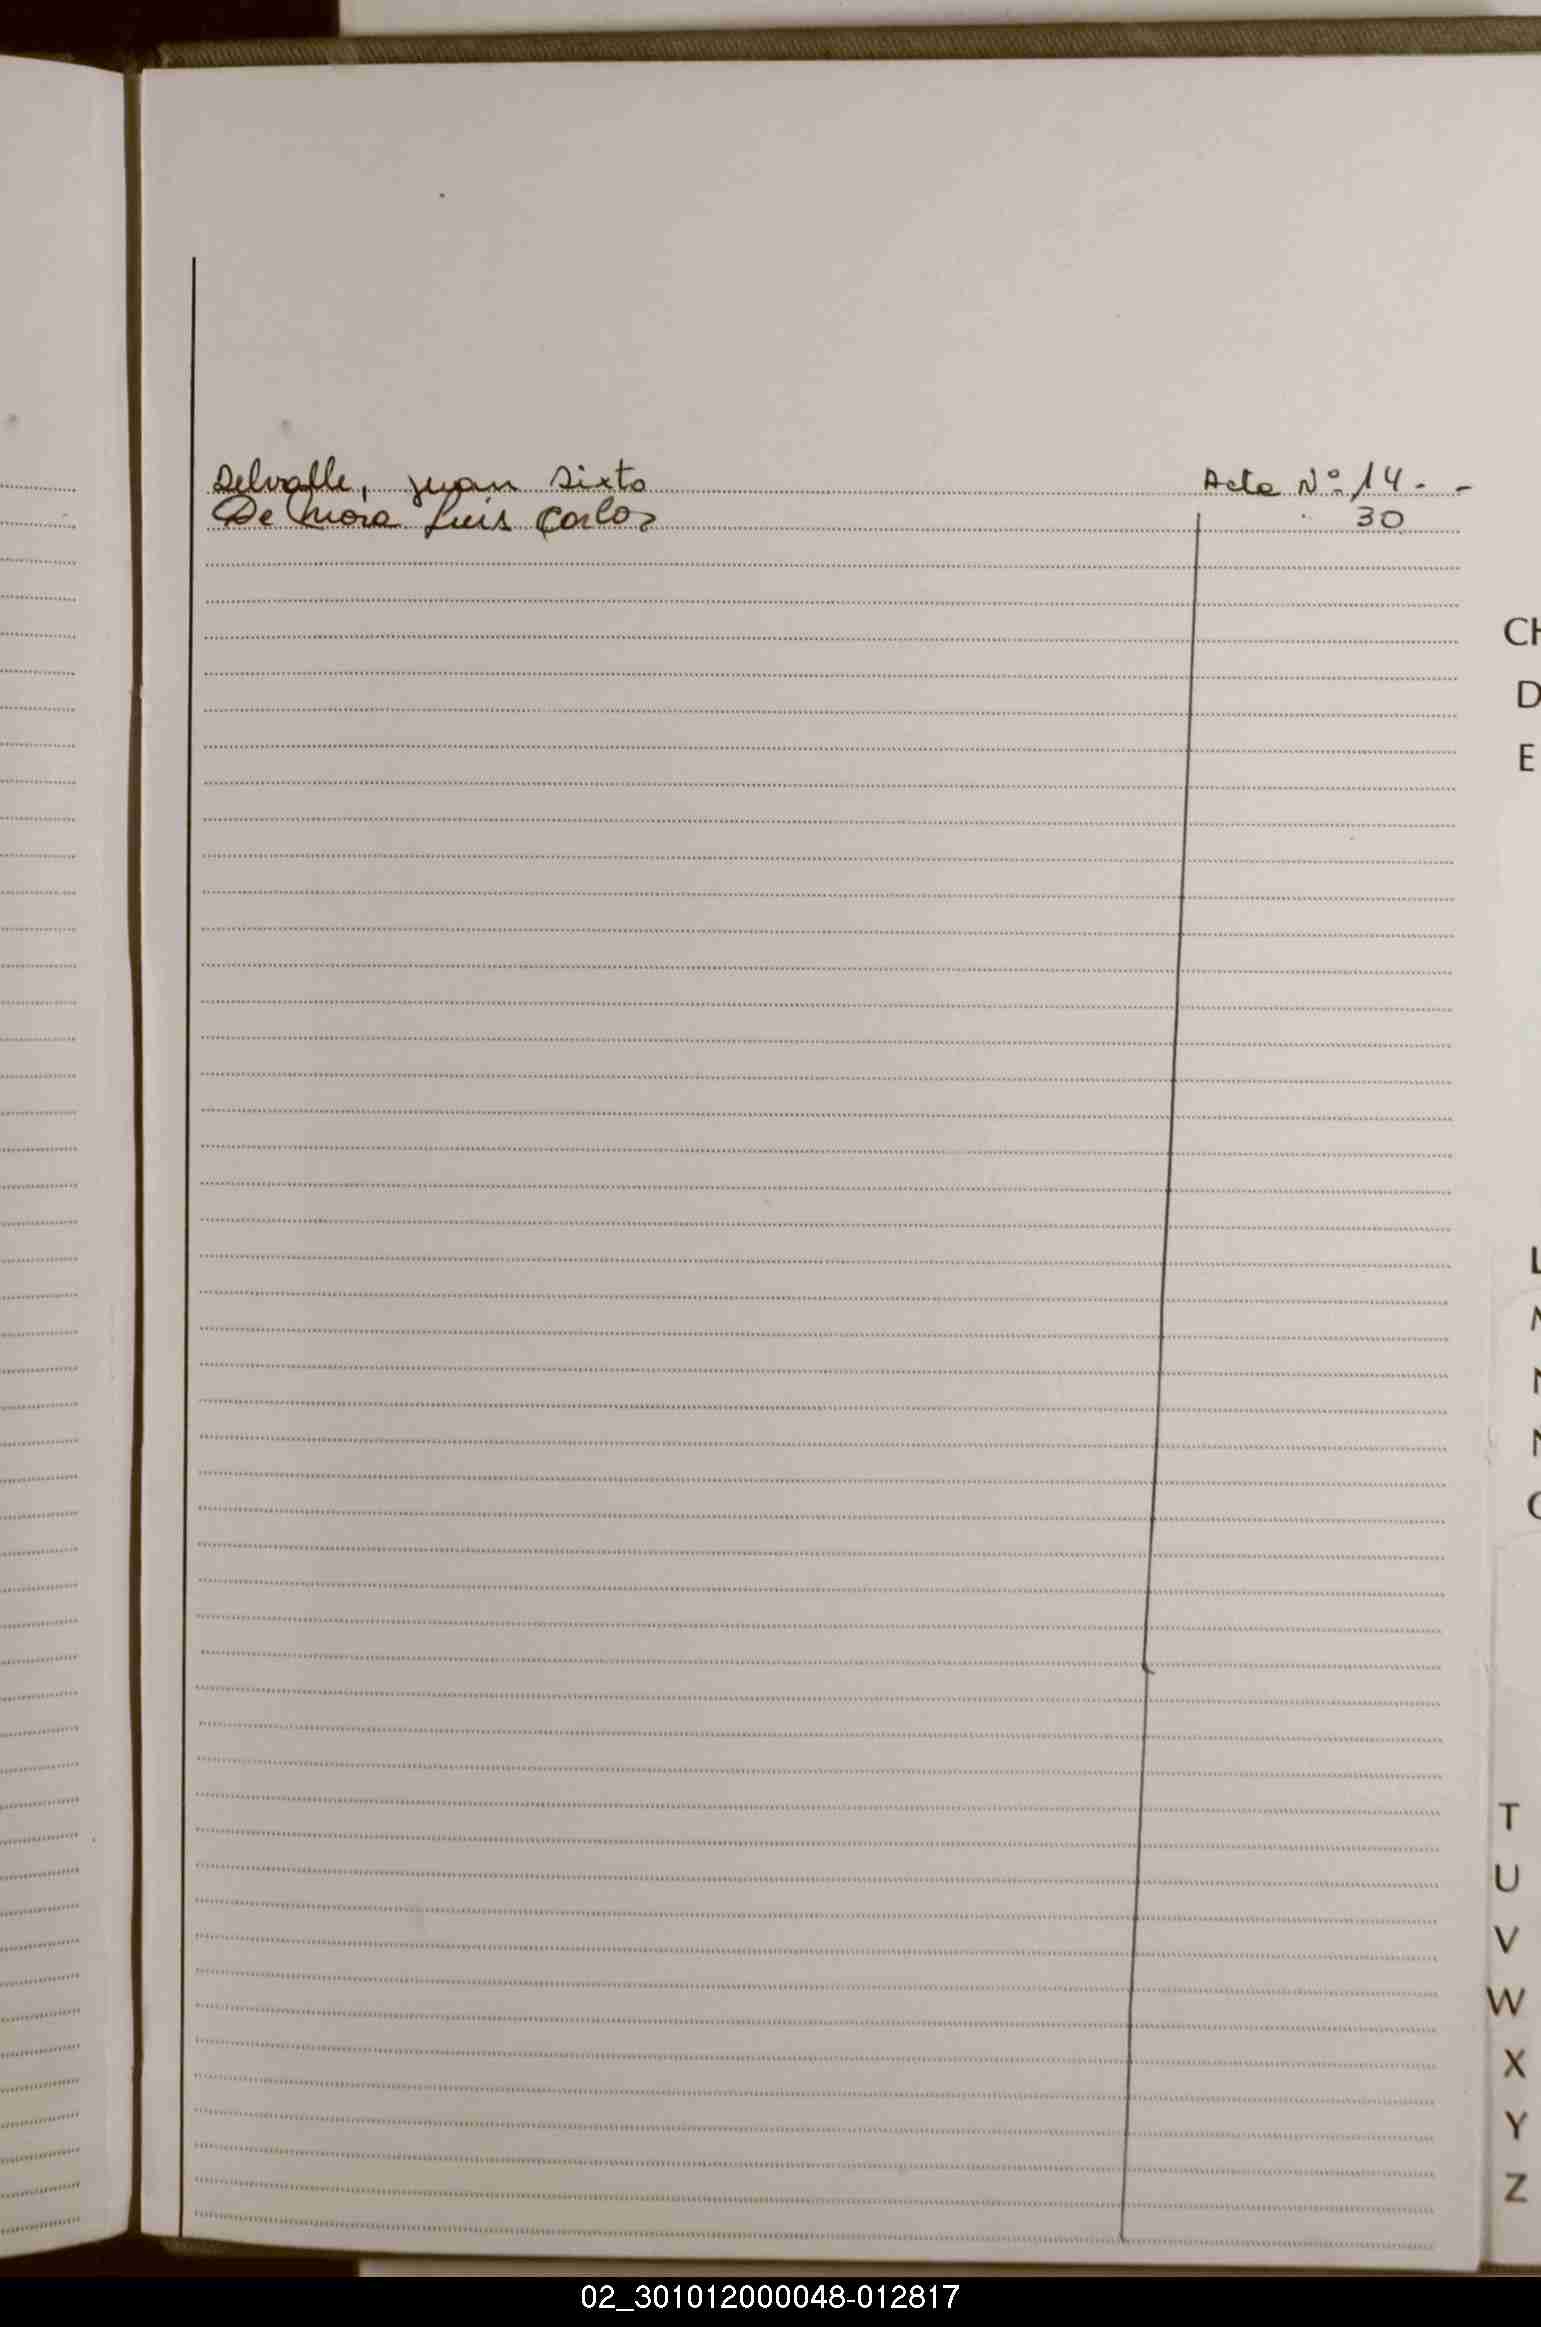 Delvalle, Juan Sixto Acta Nº 14. -
De Mora Luis Carlos 30
CH
D
E
L
M
N
N
O
T
U
V
W
X
Y
Z
02_301012000048-012817